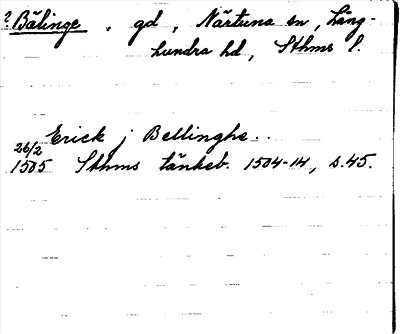 ? Bälinge, gd, Närtuna sn, Lång-
hundra hd, Sthms l.
Erick j Bellinghe..
26/2
1505 Sthms tänkeb. 1504-14, s.45.